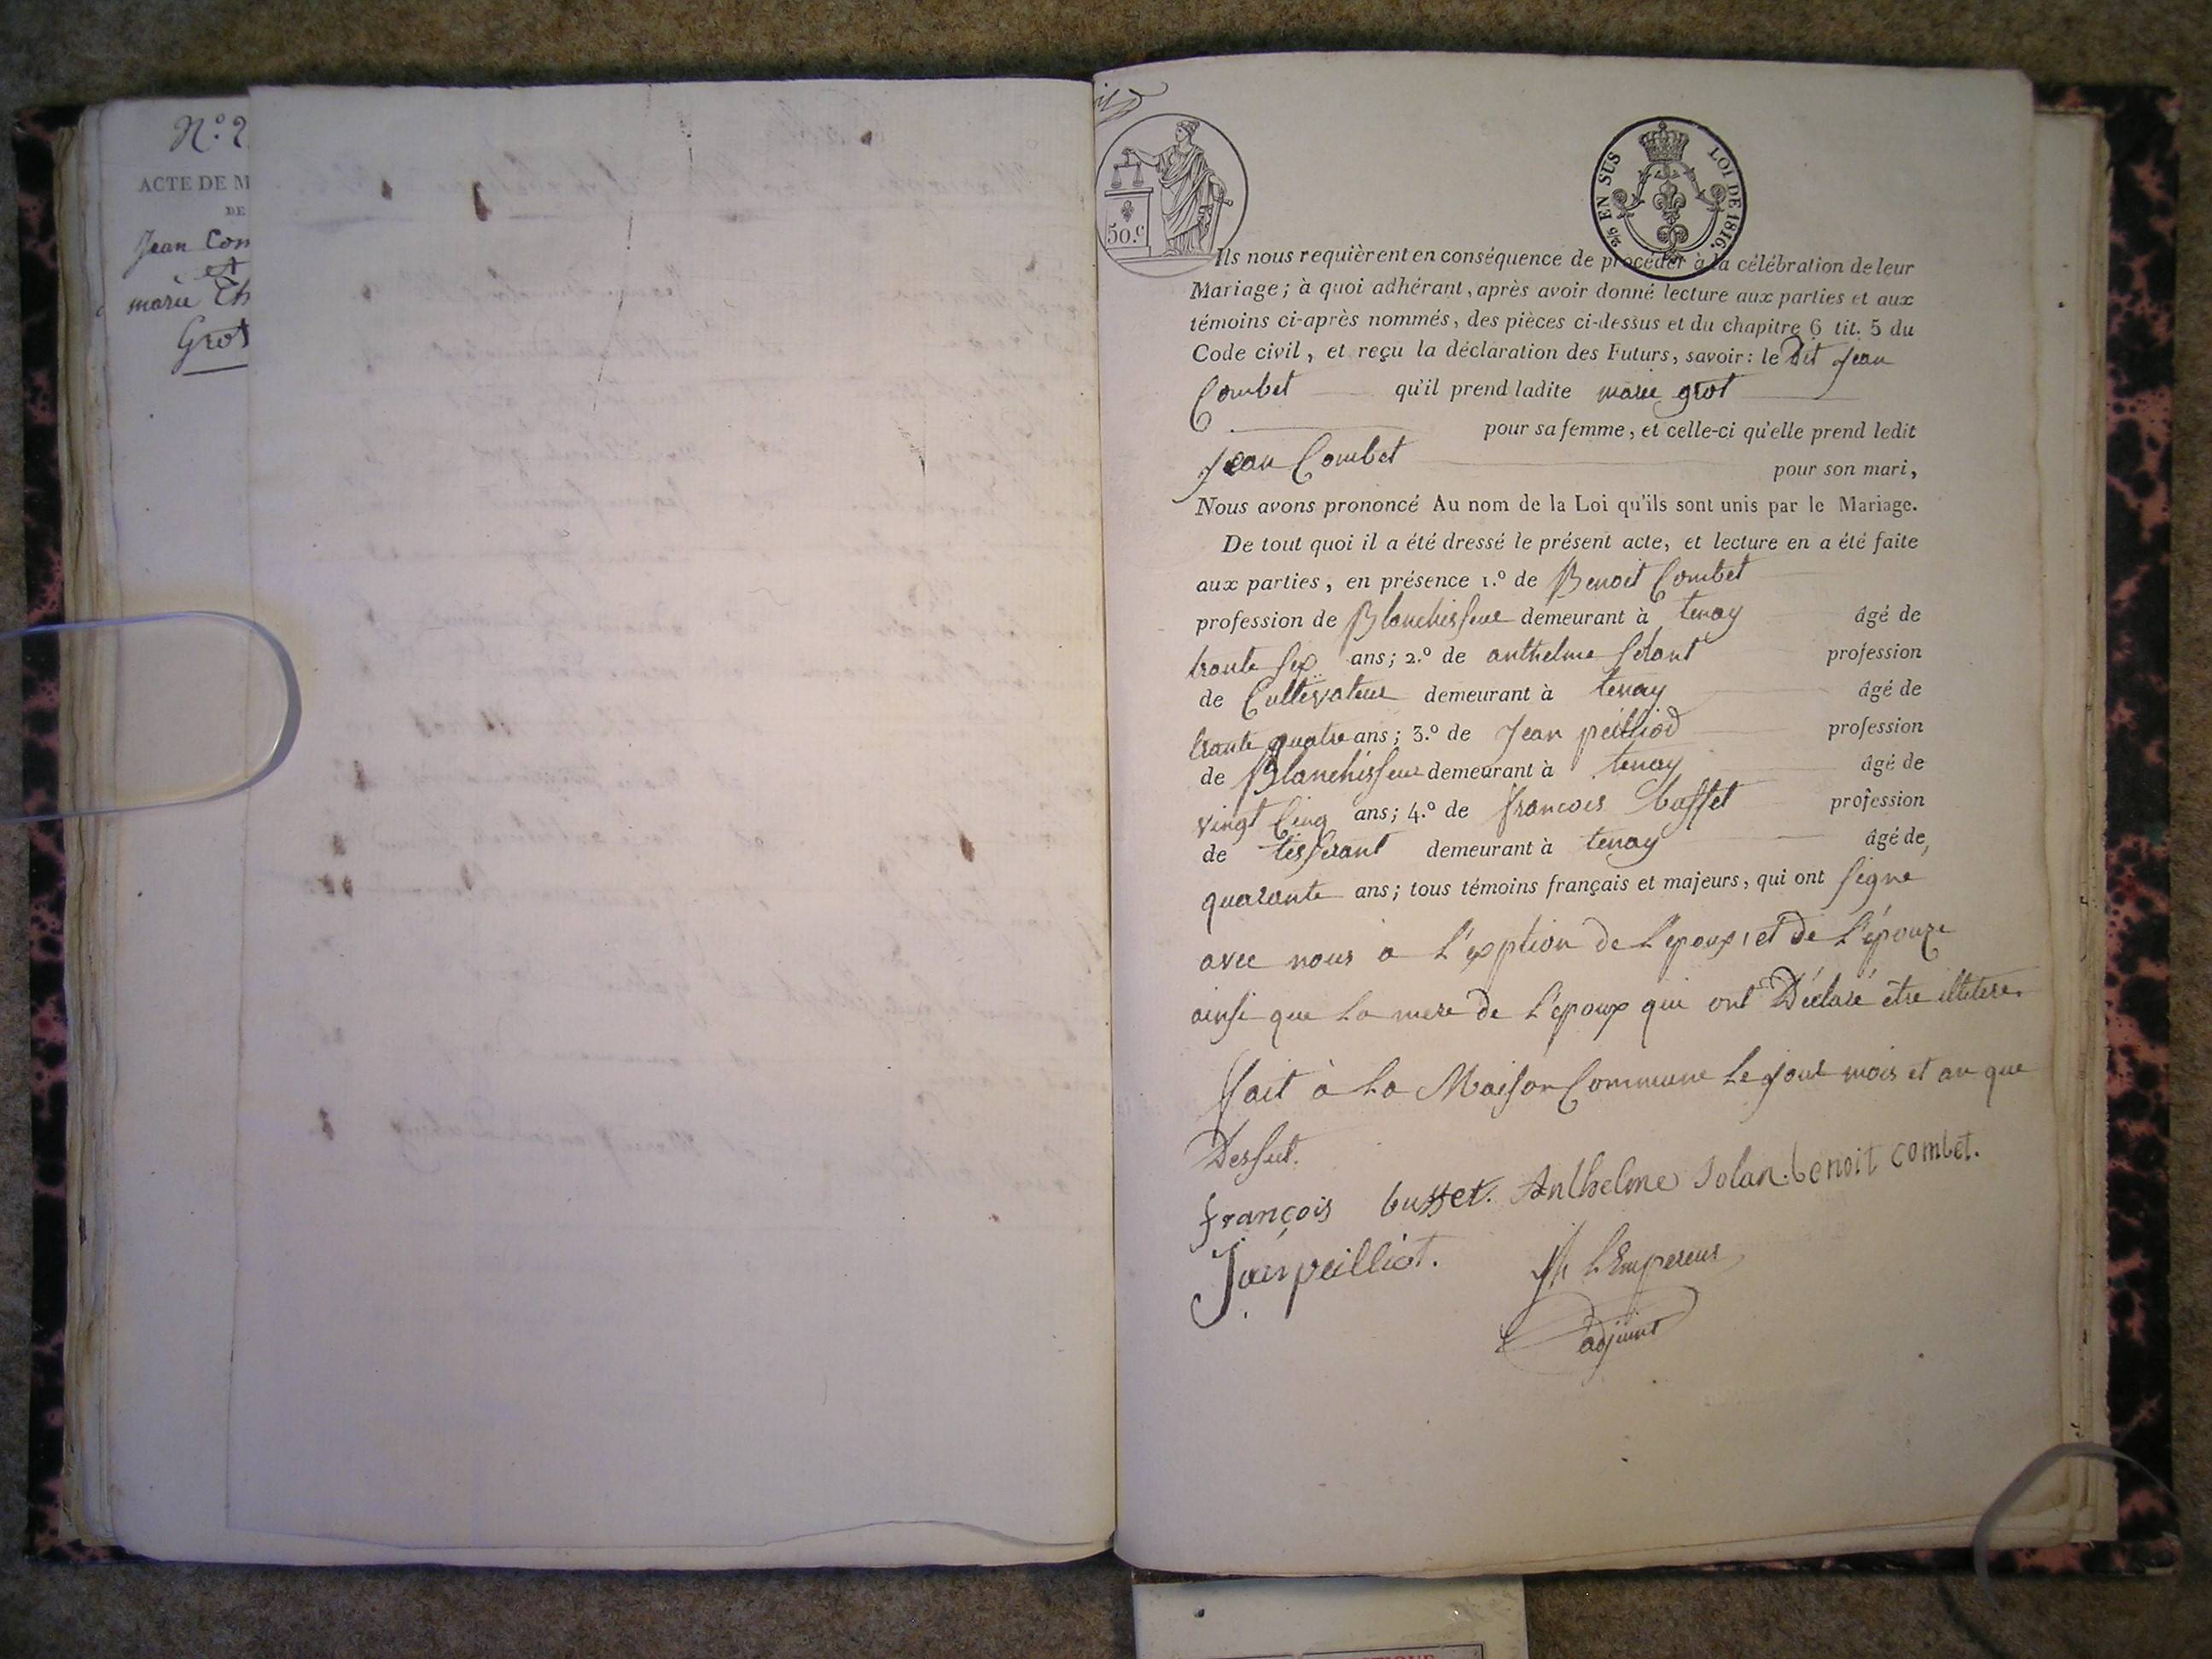 N.º 2
ACTE DE M
DE
Jean Com
et
marie Th
Grot
50.c
2/5 EN SUS LOI DE 1816.
Ils nous requièrent en conséquence de procéder à la célébration de leur
Mariage ; à quoi adhérant, après avoir donné lecture aux parties et aux
témoins ci-après nommés, des pièces ci-dessus et du chapitre 6 tit. 5 du
Code civil, et reçu la déclaration des Futurs, savoir : le Dit Jean
Combet qu'il prend ladite marie grot
pour sa femme, et celle-ci qu'elle prend ledit
Jean Combet pour son mari,
Nous avons prononcé Au nom de la Loi qu'ils sont unis par le Mariage.
De tout quoi il a été dressé le présent acte, et lecture en a été faite
aux parties, en présence 1.º de Benoit Combet
profession de Blanchisseur demeurant à tenay âgé de
trante six ans ; 2.º de anthelme solant profession
de Cultivateur demeurant à tenay âgé de
trante quatre ans ; 3.º de Jean peilliod profession
de Blanchisseur demeurant à tenay âgé de
vingt Cinq ans ; 4.º de francois buffet profession
de tisserant demeurant à tenay âgé de
quarante ans ; tous témoins français et majeurs, qui ont signe
avec nous a l'exption de l'epoux, et de l'épouze
ainsi que la mere de l'epoux qui ont Déclaré être illitere.
fait à la Maison Commune le jour mois et an que
Dessut.
françois buffet. Anthelme Solan. benoit combet.
Jean peilliot. L'Empereur
adjoint